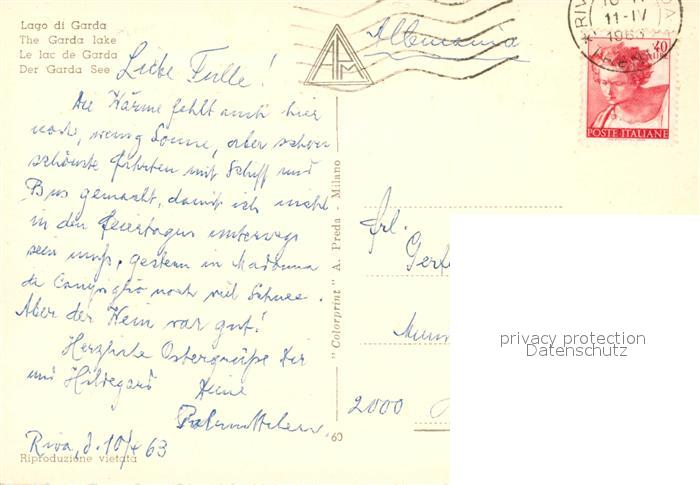 Lago di Garda
The Garda lake
Le lac de Garda
Der Garda See
Allemania
Liebe Tulle!
Die Wärme fehlt auch hier
noch, wenig Sonne, aber schon
schönste Fahrten mit Schiff und
Bus gemacht, damit ich nicht
in den Feiertagen unterwegs
sein muß, gestern in Madonna
di Campiglio noch viel Schnee.
Aber der Wein war gut!
Herzliche Ostergrüße Dir
und Hildegard Deine
Riva, d. 10/4 63
Riproduzione vietata
"Colorprint" A. Preda - Milano
60
11-IV
1963
40
LIRE
POSTE ITALIANE
Frl.
2000
privacy protection
Datenschutz